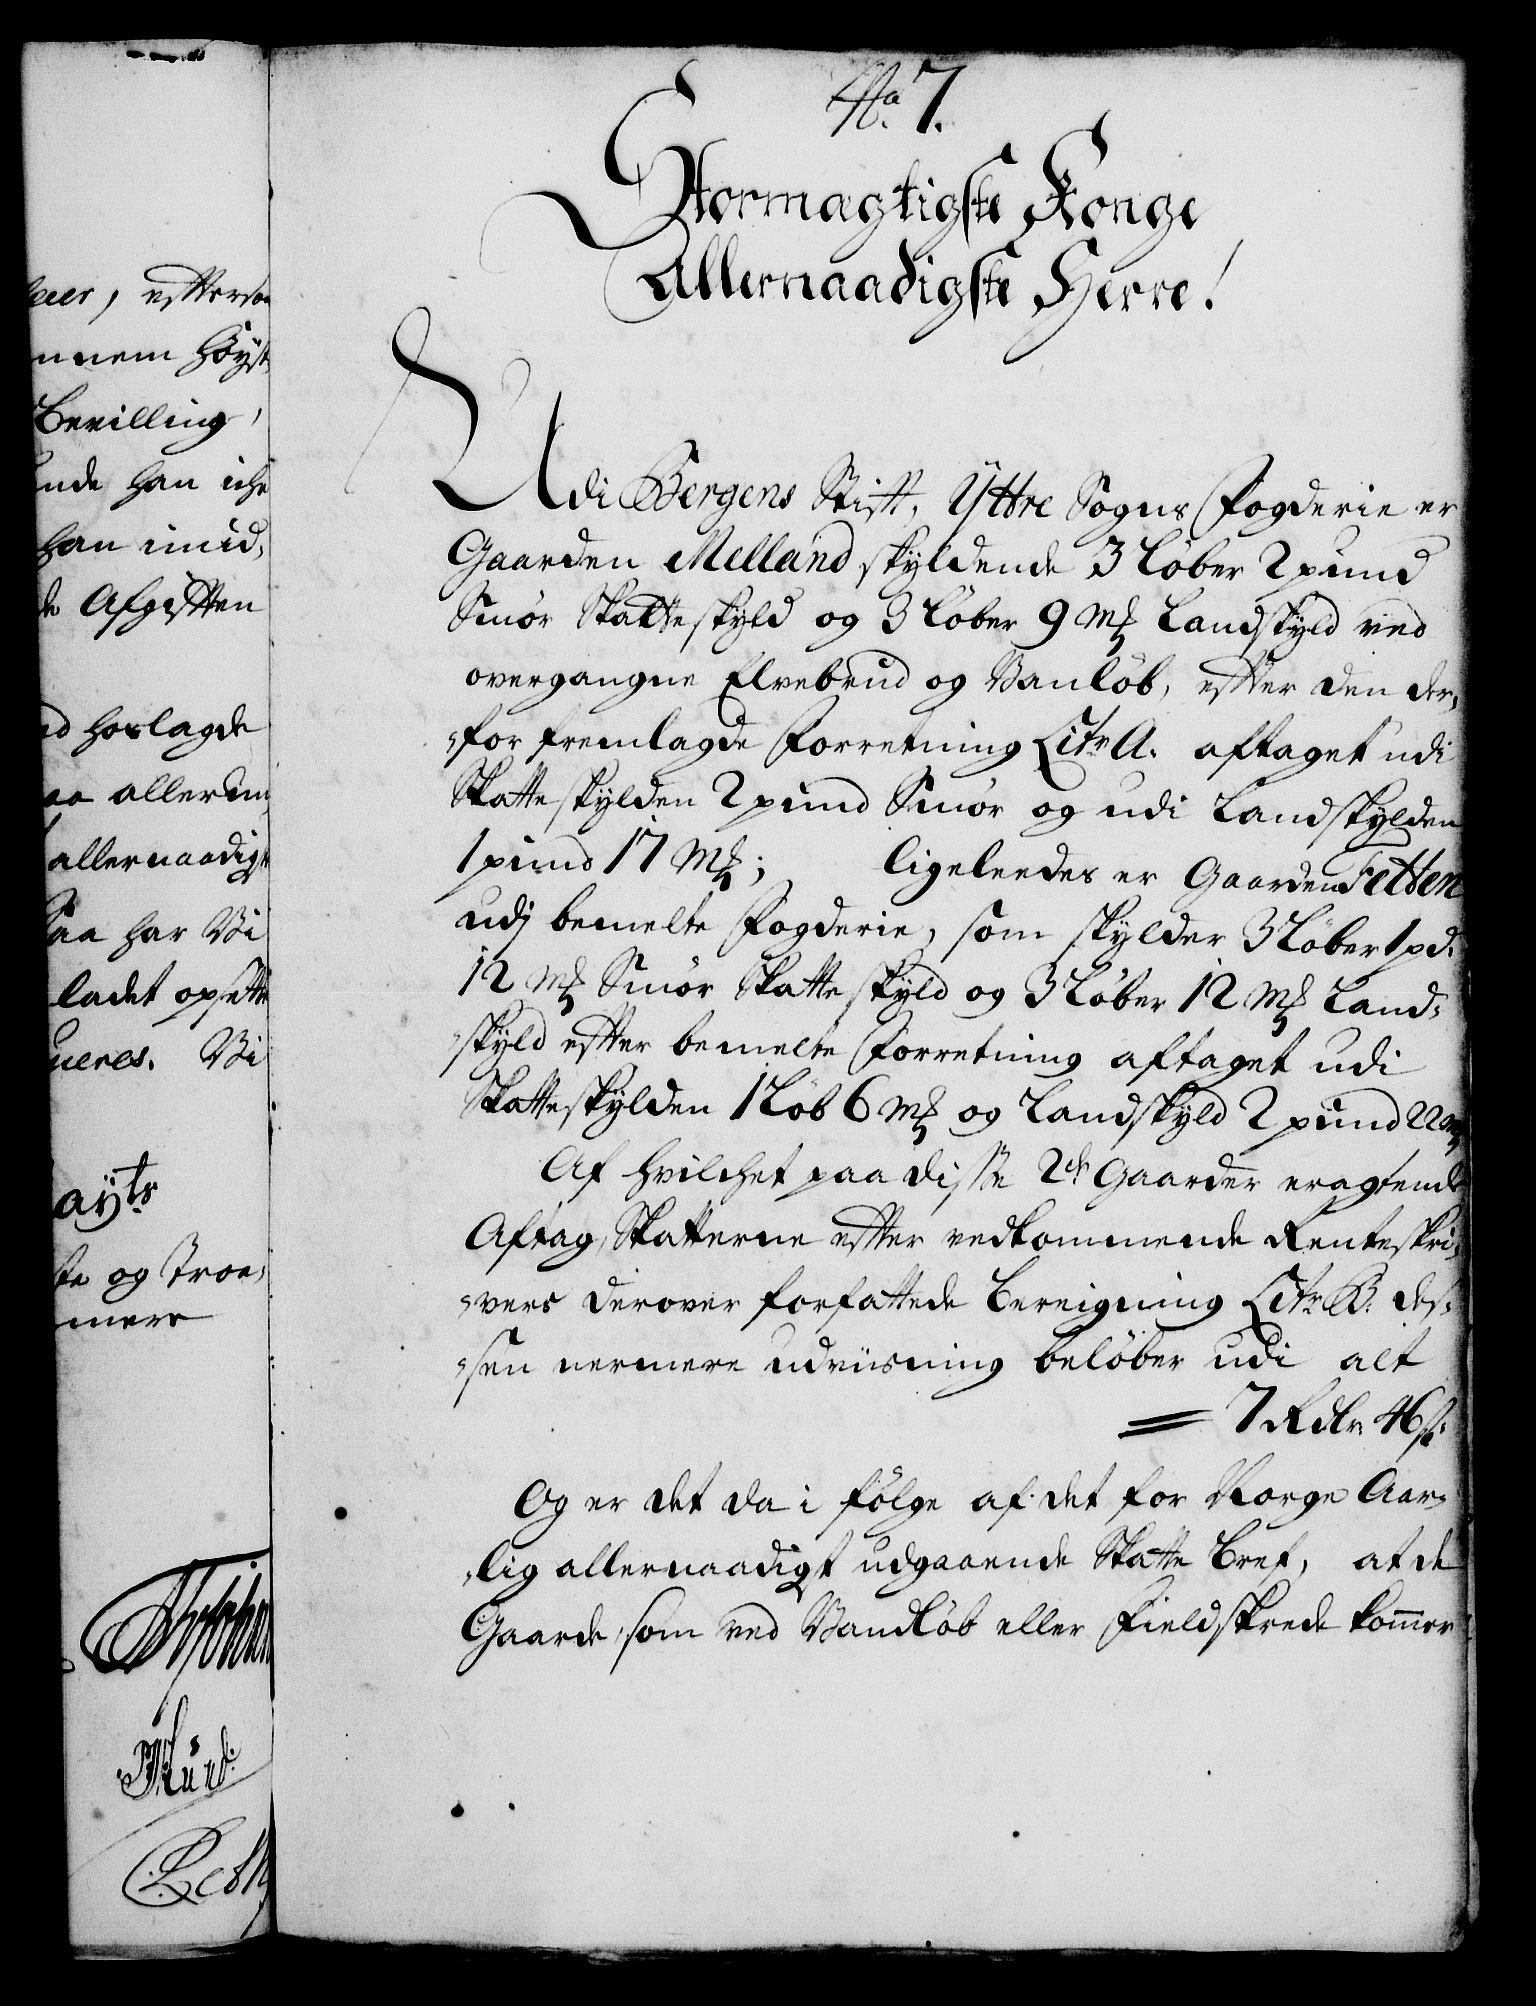 No. 7.
Stormægtigste Konge
Allernaadigste Herre!
Udi Bergens Stift, Yttre Sogns Fogderie er
Gaarden Melland skyldende 3 Løber 2 pund
Smør Skatteskyld og 3 Løber 9 Mk Landskyld ved
overgangne Elvebrud og Vanløb, effter den der„
„for fremlagde Forretning Litr A. aftaget udi
Skatteskylden 2 pund Smør og udi Landskylden
1 pund 17 Mk; ligeleedes er Gaarden Fetten
udj bemelte Fogderie, som skylder 3 Løber 1 pd.
12 Mk Smør Skatteskyld og 3 Løber 12 Mk Land„
„skyld effter bemelte Forretning aftaget udi
Skatteskylden 1 Løb 6 Mk og Landskyld 2 pund 22 Mk
Af hvilchet paa disse 2de Gaarder eragtende
Aftag, Skatterne effter vedkommende Renteskri„
„vers derover forfattede Bereigning Litr B. des„
„sen nermere udviisning beløber udi alt
= 7 Rdlr 46 s.
Og er det da i følge af det for Norge Aar„
„lig allernaadigst udgaaende Skatte Bref, at de
Gaarde, som ved Vandløb eller Fieldskrede kommer
effterso
nnem høyst
Bevilling,
han iche
han imid„
de Afgiften
hoslagde
allerun
allernaadigst
Saa har Vi
ladet opsette
ueres. Vi
ayts
og Troe„